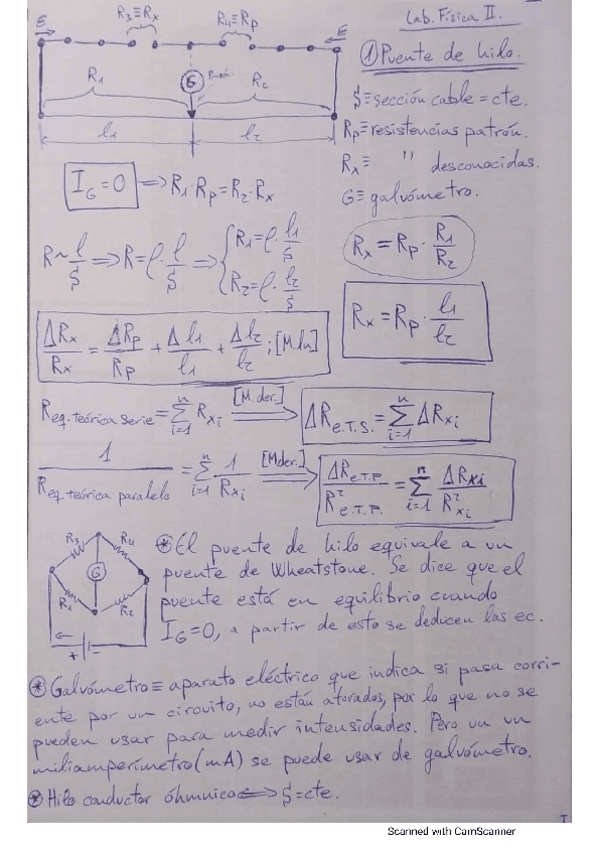 Lab. Física II.
① Puente de hilo.
R₃≡Rₓ R₄≡Rₚ
E E
G
R₁ R₂
l₁ l₂
$≡sección cable=cte.
Rₚ≡resistencias patrón.
Rₓ≡ " desconocidas.
G≡galvómetro.
I_G=0 ⟹ R₁·Rₚ=R₂·Rₓ
Rₓ=Rₚ·R₁/R₂
R~l/$ ⟹ R=ρ·l/$ ⟹ { R₁=ρ·l₁/$
R₂=ρ·l₂/$
Rₓ=Rₚ·l₁/l₂
ΔRₓ/Rₓ = ΔRₚ/Rₚ + Δl₁/l₁ + Δl₂/l₂ ; [M.ln]
R_eq.teórica serie = Σ_{i=1}^{n} R_{xi} [M.der.] ⟹ ΔR_{e.T.S.} = Σ_{i=1}^{n} ΔR_{xi}
1/R_eq.teórica paralelo = Σ_{i=1}^{n} 1/R_{xi} [M.der.] ⟹ ΔR_{e.T.P.}/R²_{e.T.P.} = Σ_{i=1}^{n} ΔR_{xi}/R²_{xi}
R₃ R₄
G
R₁ R₂
+ -
⊛ El puente de hilo equivale a un
puente de Wheatstone. Se dice que el
puente está en equilibrio cuando
I_G=0, a partir de esto se deducen las ec.
⊛ Galvómetro≡ aparato eléctrico que indica si pasa corri-
ente por un circuito, no están aforados, por lo que no se
pueden usar para medir intensidades. Pero un un
miliamperímetro(mA) se puede usar de galvómetro.
⊛ Hilo conductor óhmnico ⟺ $=cte.
I
Scanned with CamScanner